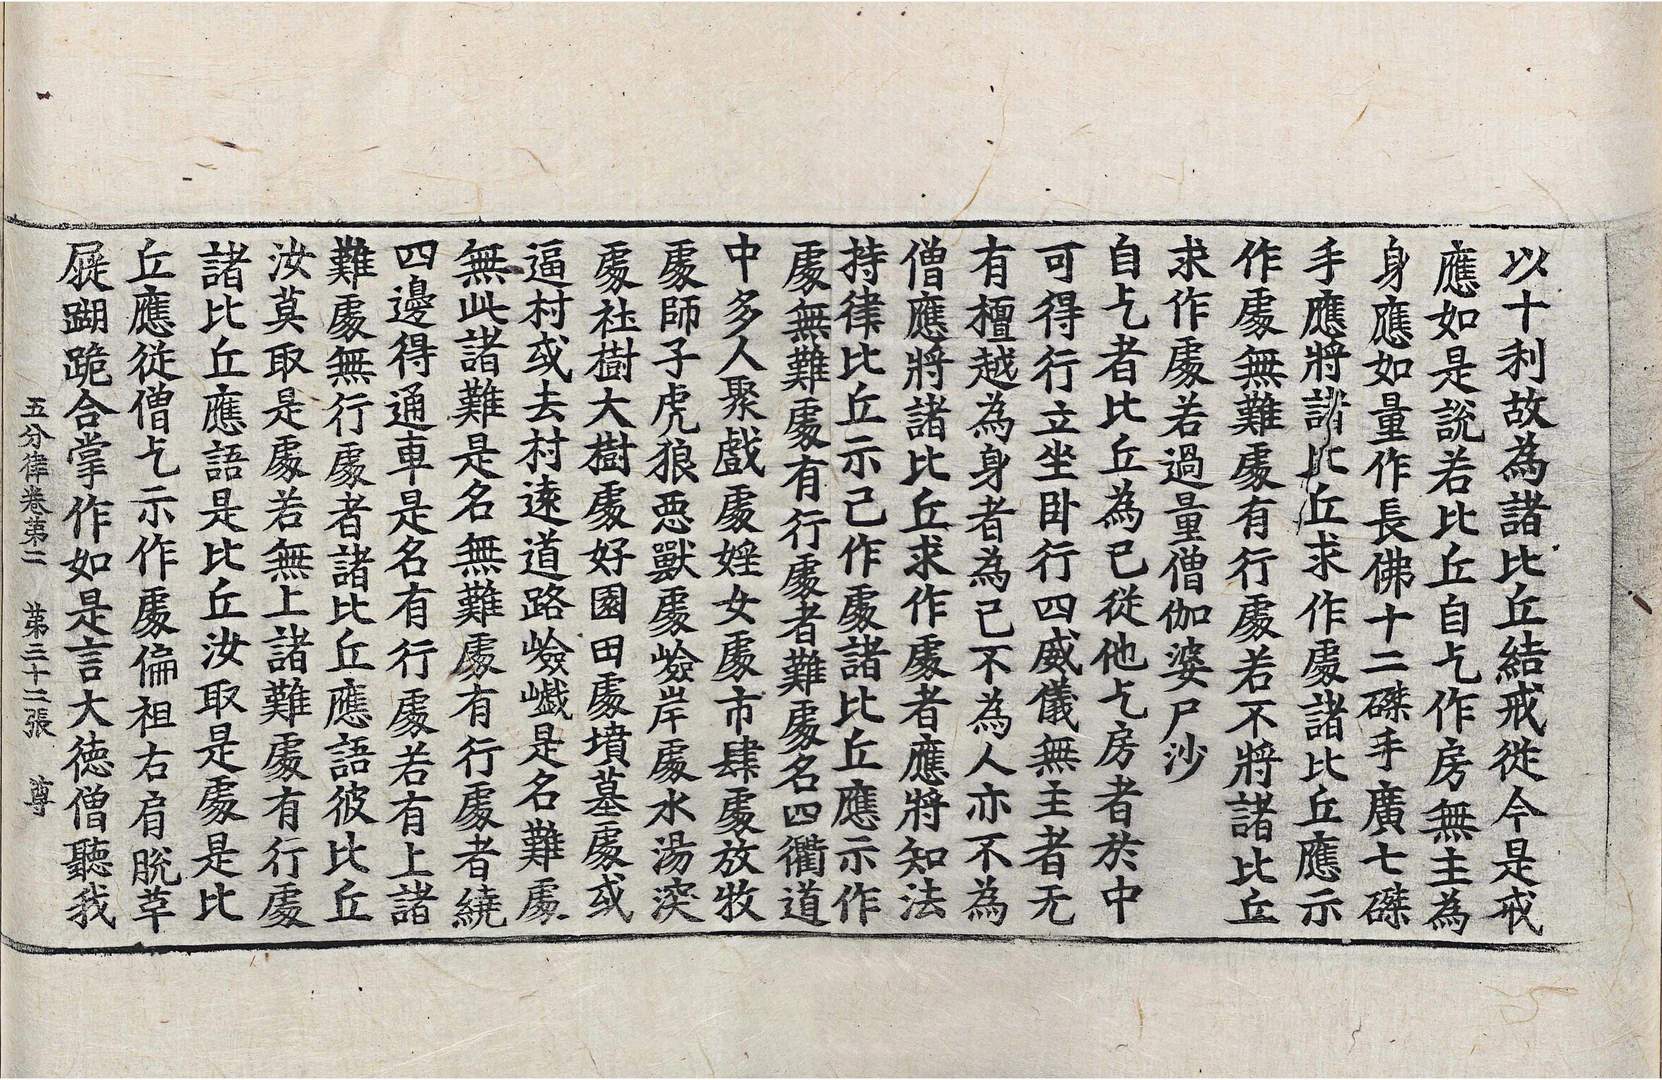 以十利故為諸比丘結戒從今是戒
應如是說若比丘自乞作房無主為
身應如量作長佛十二磔手廣七磔
手應將諸比丘求作處諸比丘應示
作處無難處有行處若不將諸比丘
求作處若過量僧伽婆尸沙
自乞者比丘為已從他乞房者於中
可得行立坐卧行四威儀無主者无
有檀越為身者為己不為人亦不為
僧應將諸比丘求作處者應將知法
持律比丘示己作處諸比丘應示作
處無難處有行處者難處名四衢道
中多人聚戲處婬女處市肆處放牧
處師子虎狼惡獸處嶮岸處水湯突
處社樹大樹處好園田處墳墓處或
逼村或去村遠道路嶮巇是名難處
無此諸難是名無難處有行處者繞
四邊得通車是名有行處若有上諸
難處無行處者諸比丘應語彼比丘
汝莫取是處若無上諸難處有行處
諸比丘應語是比丘汝取是處是比
丘應從僧乞示作處偏袒右肩脫革
屣蹋跪合掌作如是言大德僧聽我
五分律卷第二 第三十二張 尊